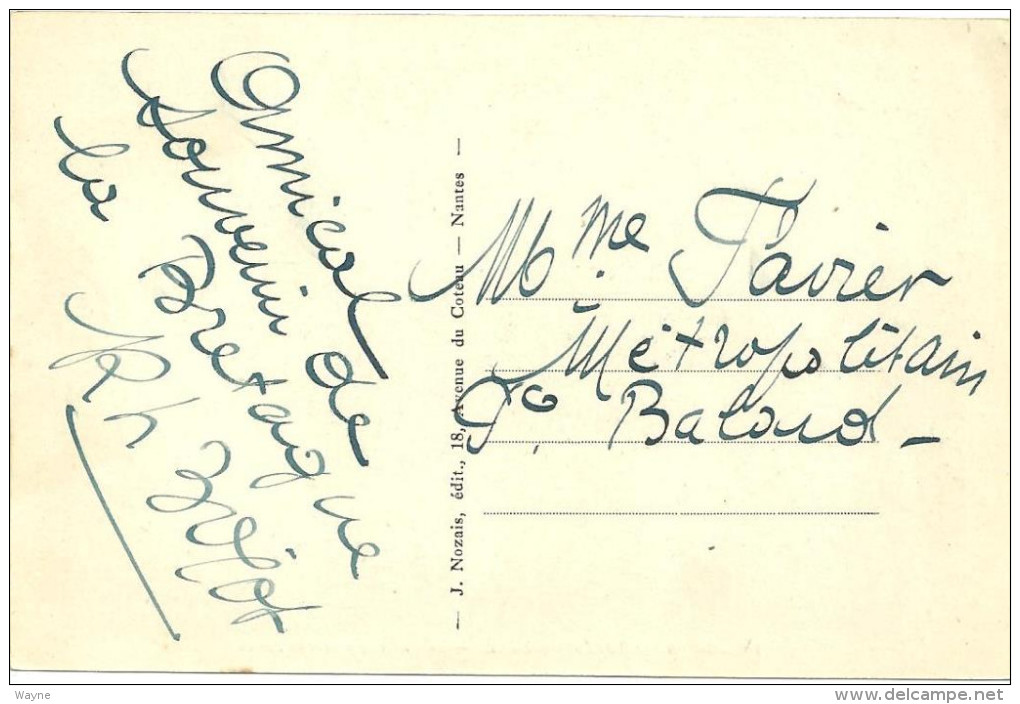 Amical
souvenir de
la Bretagne
— J. Nozais, édit., 18, Avenue du Coteau — Nantes —
Mme Tavier
Métropolitain
Balard -
Wayne
www.delcampe.net